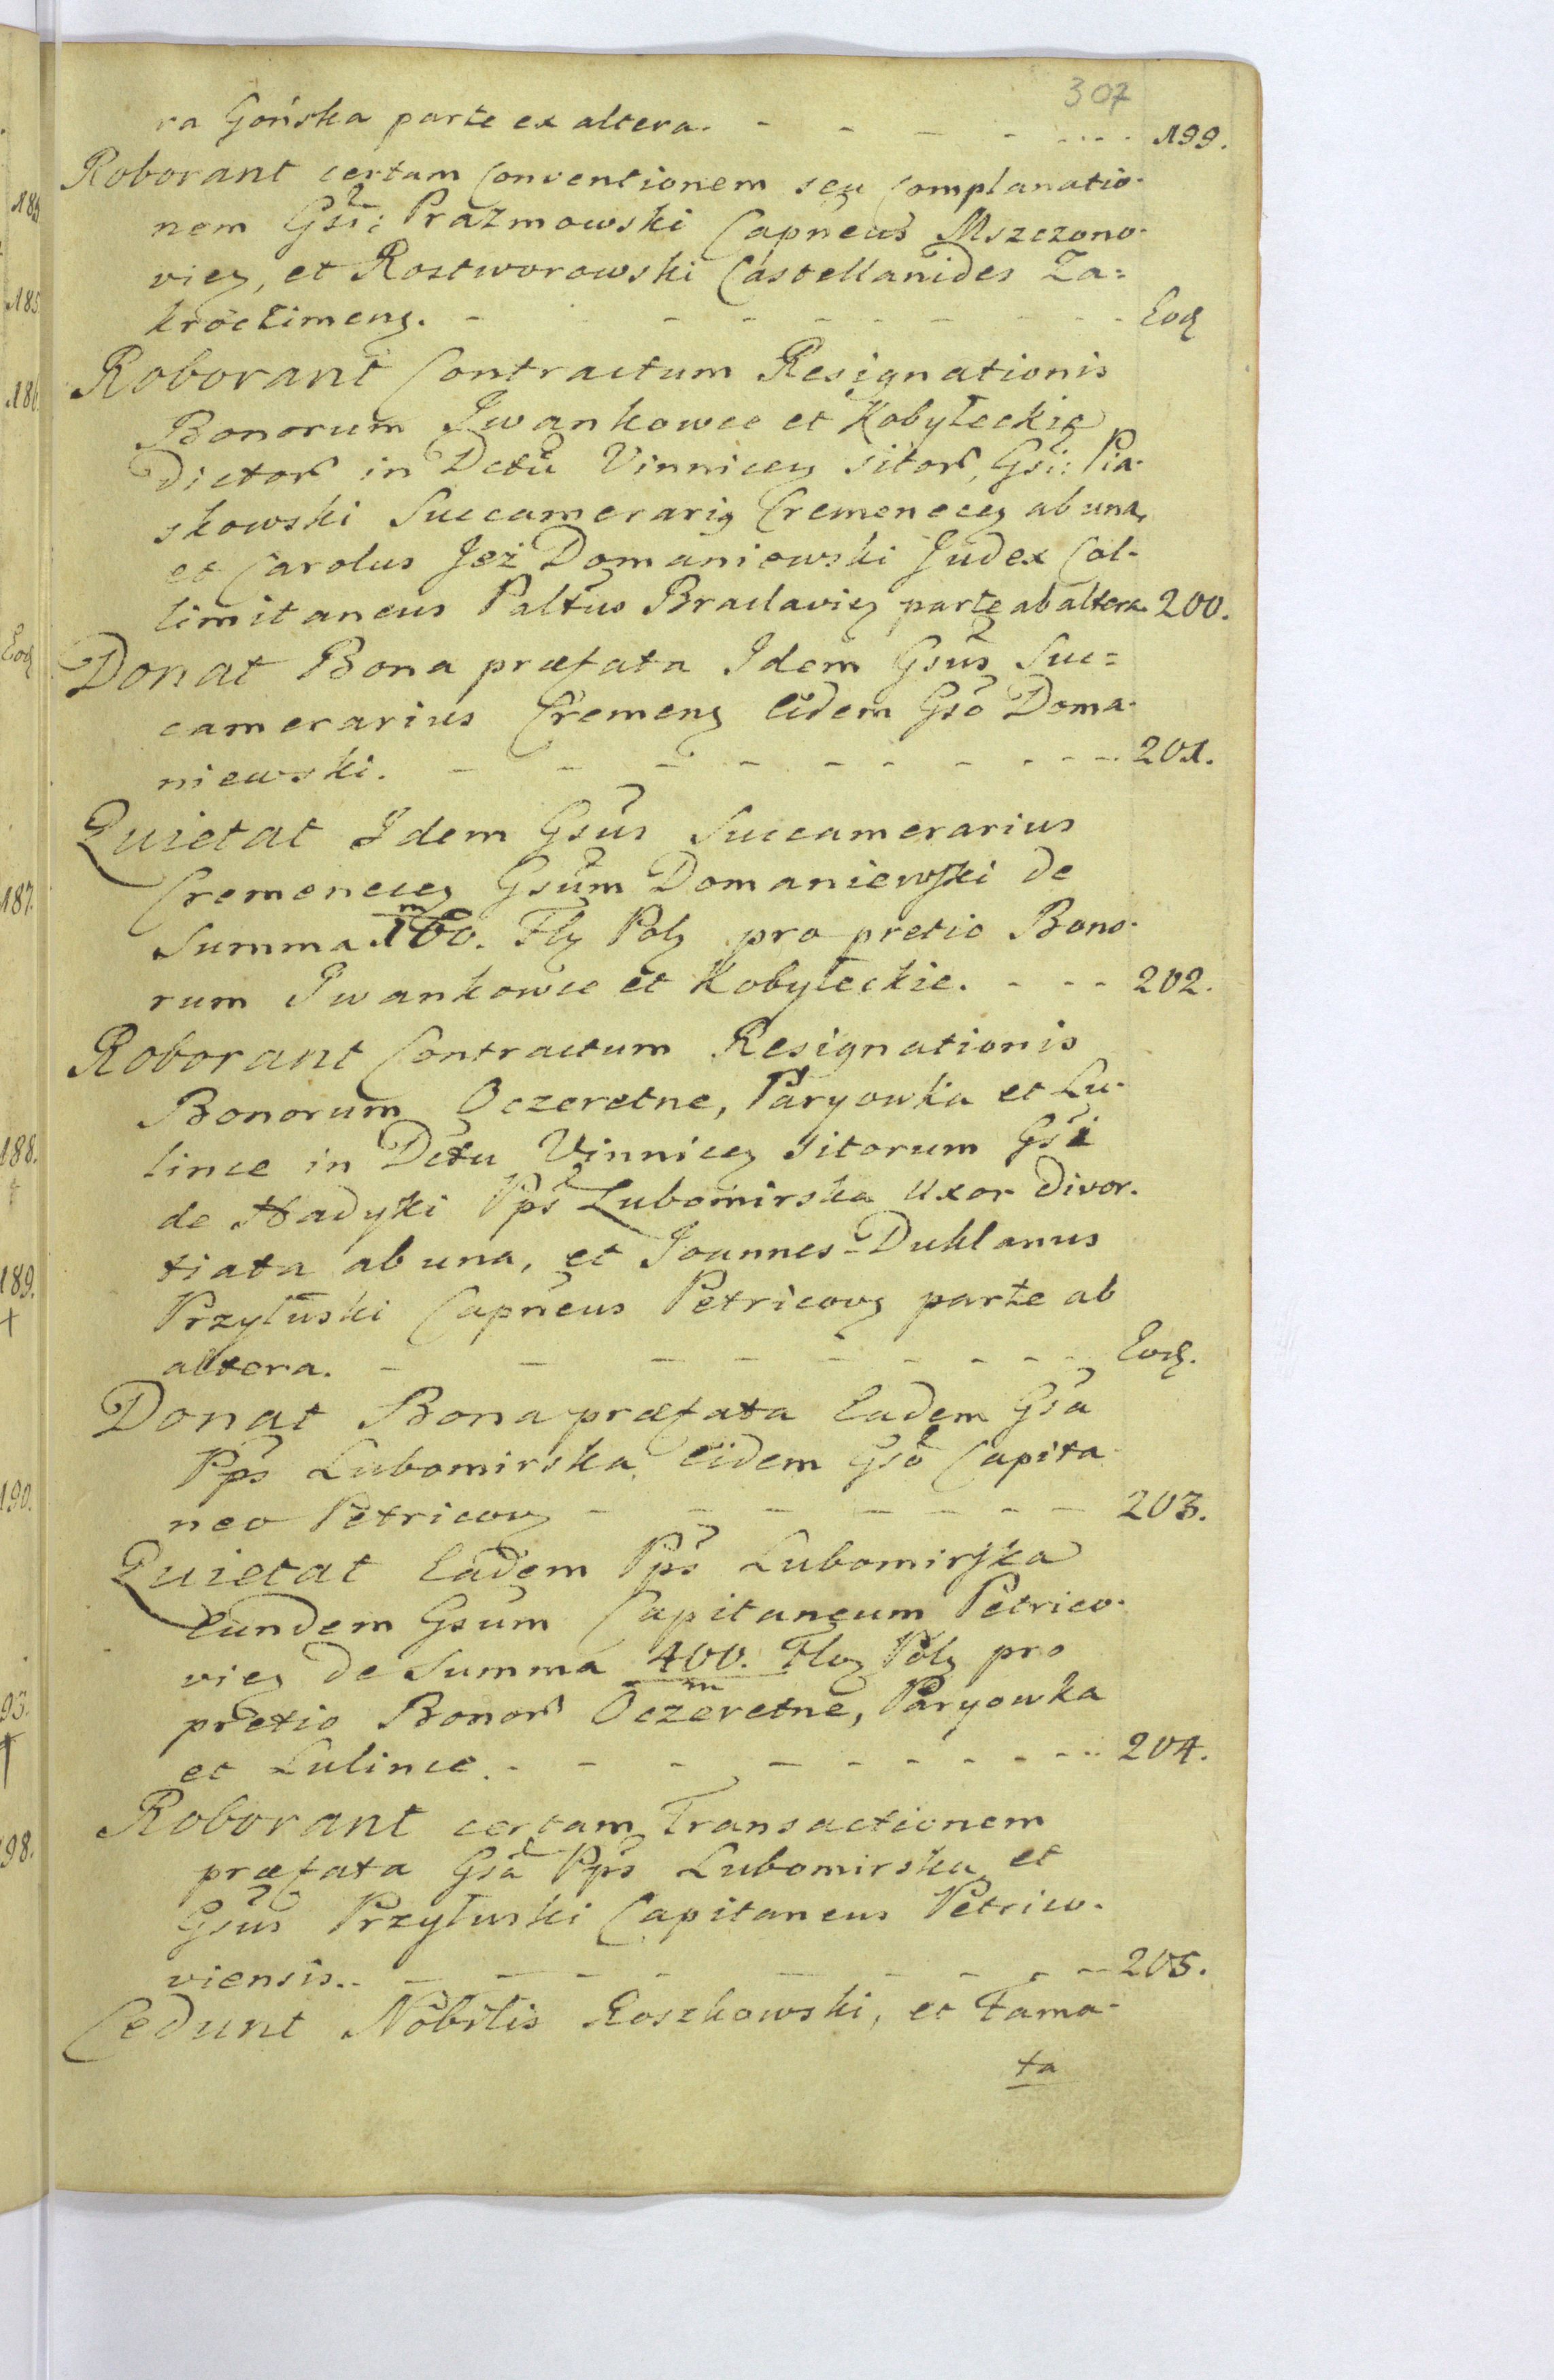 307
ra Gońska parte ex altera. - - - - - - - 199.
Roborant certam Conventionem seu Complanatio-
nem Gsi: Prazmowski Capneus Mszczono-
vien, et Rostworowski Castellanides Za=
kroctimens. - - - - - - - - Eod
Roborant Contractum Resignationis
Bonorum Jwankowce et Kobyłeckie
dictor in Dctu Vinnicen sitor, Gsi: Pia-
skowski Succamerarius Cremenecen ab una,
et Carolus Jeż Domaniewski Judex Col-
limitaneus Paltus Braclavien parte ab altera. 200.
Donat Bona præfata Idem Gsus Suc=
camerarius Cremens Eidem Gso Doma-
niewski. - - - - - - - - - 201.
Quietat Idem Gsus Succamerarius
Cremenecen Gsum Domaniewski de
Summa 160. m Fln Pol pro pretio Bono-
rum Jwankowce et Kobyłeckie. - - - 202.
Roborant Contractum Resignationis
Bonorum Oczeretne, Paryowka et Lu-
lince in Dctu Vinnicen sitorum Gsi
de Hadyki Pps Lubomirska Uxor Divor-
tiata ab una, et Joannes-Duklanus
Przyłuski Capneus Petricovs parte ab
altera. - - - - - - - - - Eod.
Donat Bona præfata Eadem Gsa
Pps Lubomirska Eidem Gso Capita-
neo Petricov - - - - - - - 203.
Quietat Eadem Pps Lubomirska
Eundem Gsum Capitaneum Petrico-
vien de Summa 400. m Flor Pol pro
pretio Bonor Oczeretne, Paryowka
et Lulince. - - - - - - - - - 204.
Roborant certam Transactionem
præfata Gsa Pps Lubomirska et
Gsus Przyłuski Capitaneus Petrico-
viensis. - - - - - - - - - 205.
Cedunt Nobilis Roszkowski, et Fama-
ta
185
185.
186.
Eod
187.
188.
189.
190.
93.
98.